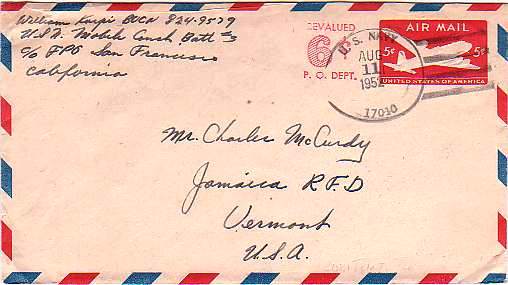 William Karpi BUCN 824-9579
U.S.N. Mobile Const. Batt #3
c/o FPO San Francisco
California
REVALUED
6¢
P. O. DEPT.
U.S. NAVY
AUG
11
1952
17010
AIR MAIL
5¢ 5¢
UNITED STATES OF AMERICA
Mr. Charles McCurdy
Jamaica R.F.D
Vermont
U.S.A.